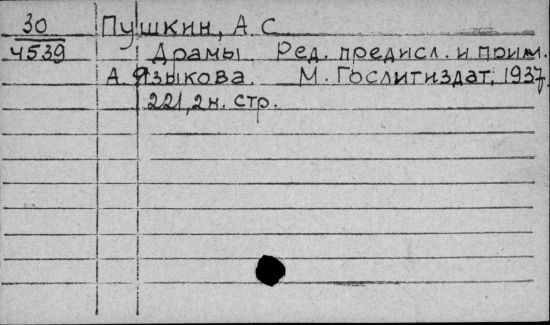 30
4539
Пушкин, А. С
Драмы. Ред. предисл. и прим.
А. Языкова. М. Гослитиздат, 1937.
221, 2 н. стр.